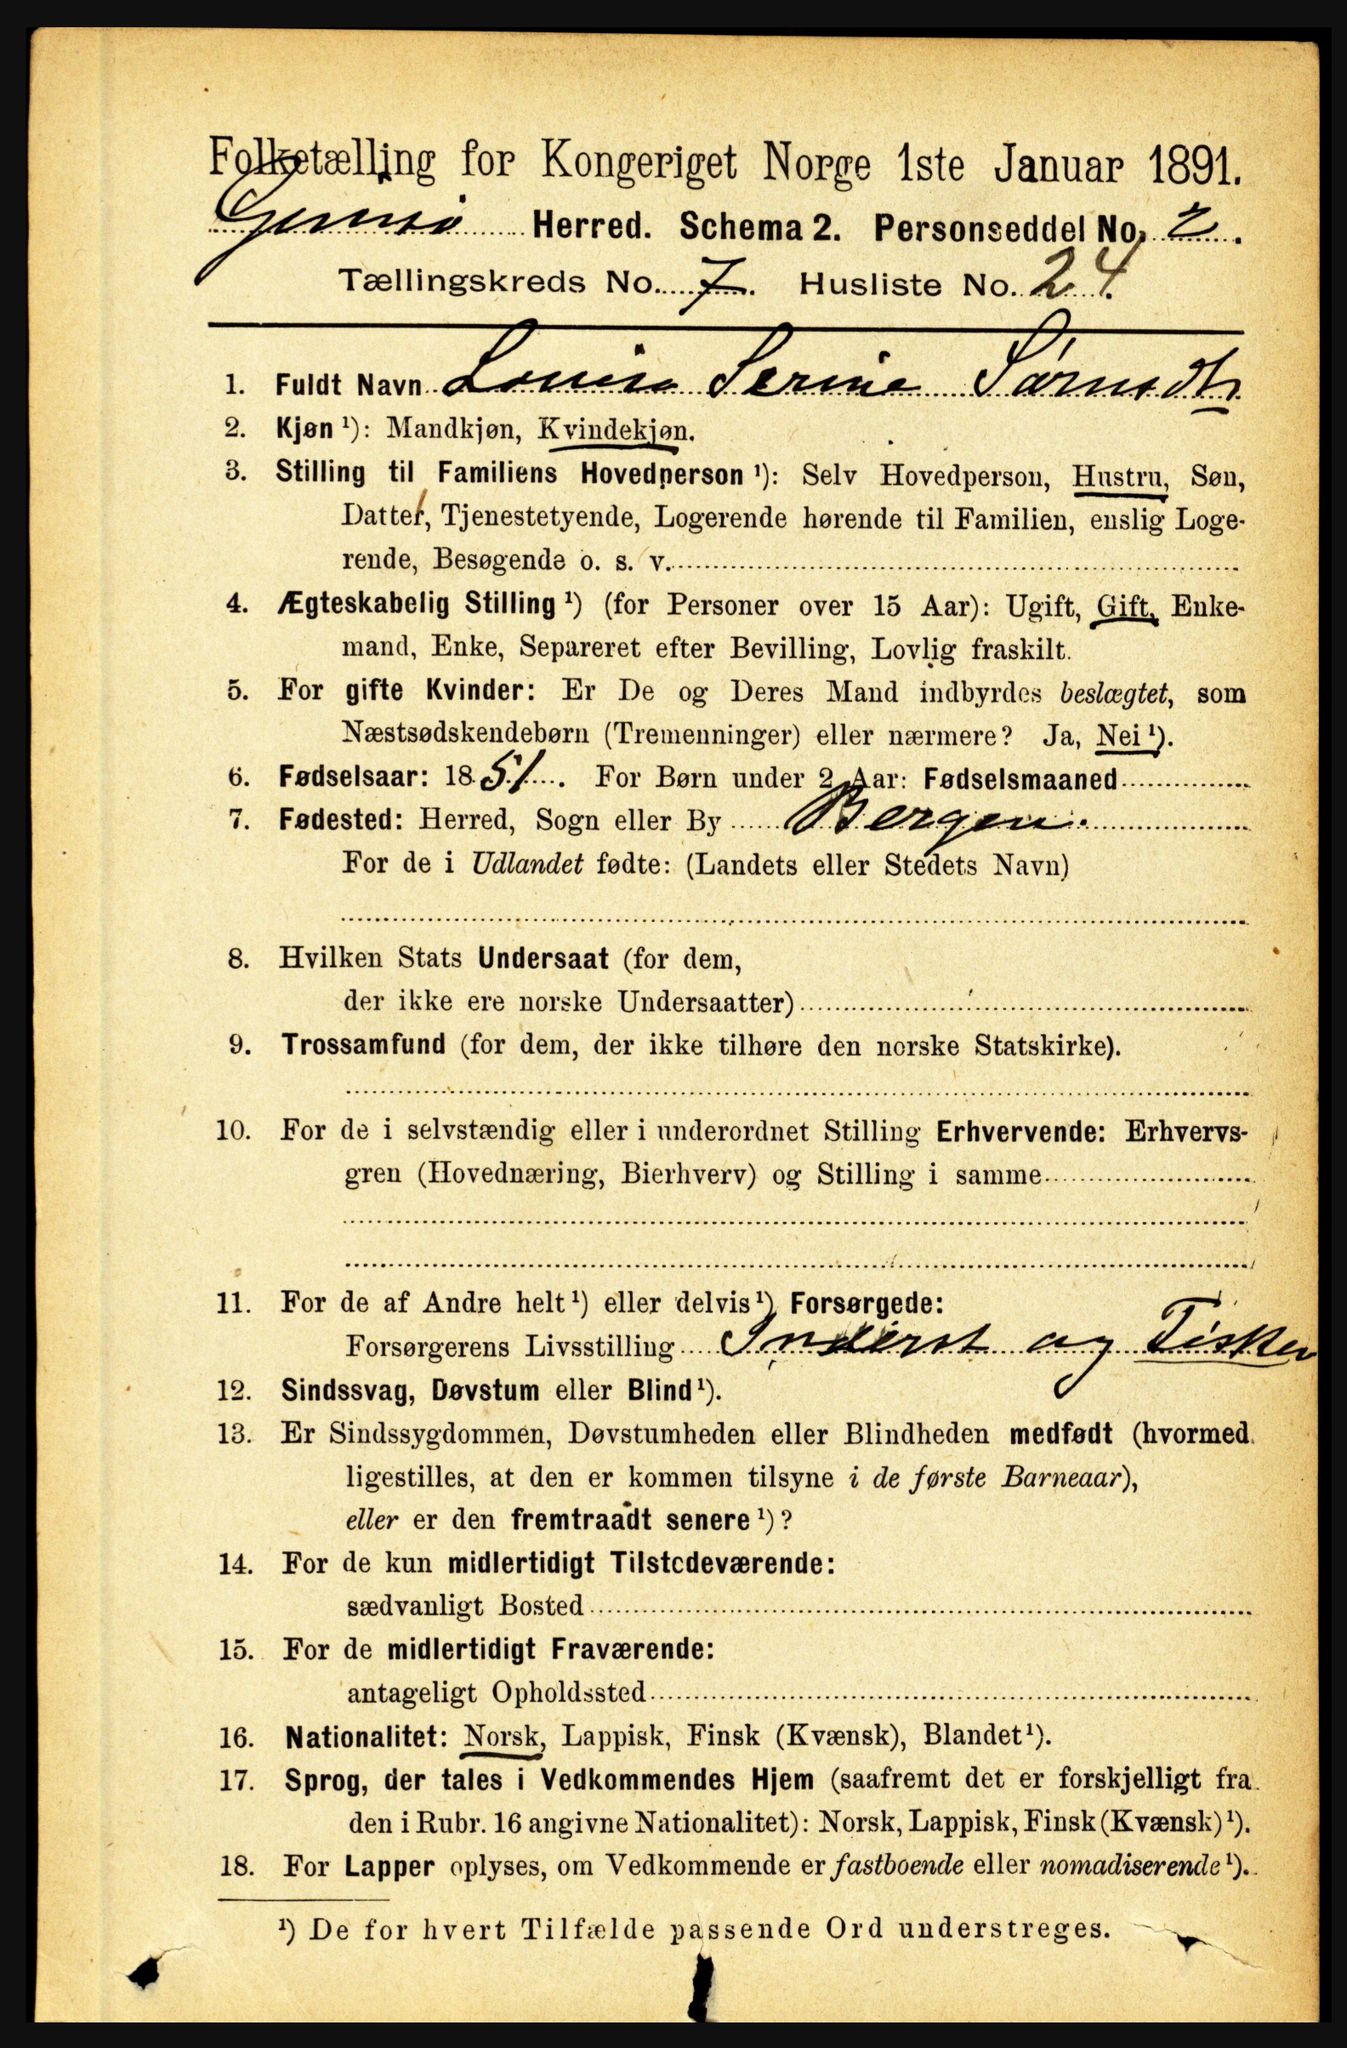 Folketælling for Kongeriget Norge 1ste Januar 1891.
Gimsø Herred. Schema 2. Personseddel No. 2.
Tællingskreds No. 7. Husliste No. 24.
1. Fuldt Navn Lovise Serine Sørnsdtr
2. Kjøn ¹): Mandkjøn, Kvindekjøn.
3. Stilling til Familiens Hovedperson ¹): Selv Hovedperson, Hustru, Søn,
Datter, Tjenestetyende, Logerende hørende til Familien, enslig Loge-
rende, Besøgende o. s. v.
4. Ægteskabelig Stilling ¹) (for Personer over 15 Aar): Ugift, Gift, Enke-
mand, Enke, Separeret efter Bevilling, Lovlig fraskilt.
5. For gifte Kvinder: Er De og Deres Mand indbyrdes beslægtet, som
Næstsødskendebørn (Tremenninger) eller nærmere? Ja, Nei ¹).
6. Fødselsaar: 1851. For Børn under 2 Aar: Fødselsmaaned
7. Fødested: Herred, Sogn eller By Bergen.
For de i Udlandet fødte: (Landets eller Stedets Navn)
8. Hvilken Stats Undersaat (for dem,
der ikke ere norske Undersaatter)
9. Trossamfund (for dem, der ikke tilhøre den norske Statskirke).
10. For de i selvstændig eller i underordnet Stilling Erhvervende: Erhvervs-
gren (Hovednæring, Bierhverv) og Stilling i samme
11. For de af Andre helt ¹) eller delvis ¹) Forsørgede:
Forsørgerens Livsstilling Inderst og Fisker
12. Sindssvag, Døvstum eller Blind ¹).
13. Er Sindssygdommen, Døvstumheden eller Blindheden medfødt (hvormed
ligestilles, at den er kommen tilsyne i de første Barneaar),
eller er den fremtraadt senere ¹)?
14. For de kun midlertidigt Tilstedeværende:
sædvanligt Bosted
15. For de midlertidigt Fraværende:
antageligt Opholdssted
16. Nationalitet: Norsk, Lappisk, Finsk (Kvænsk), Blandet ¹).
17. Sprog, der tales i Vedkommendes Hjem (saafremt det er forskjelligt fra
den i Rubr. 16 angivne Nationalitet): Norsk, Lappisk, Finsk (Kvænsk) ¹).
18. For Lapper oplyses, om Vedkommende er fastboende eller nomadiserende ¹).
¹) De for hvert Tilfælde passende Ord understreges.